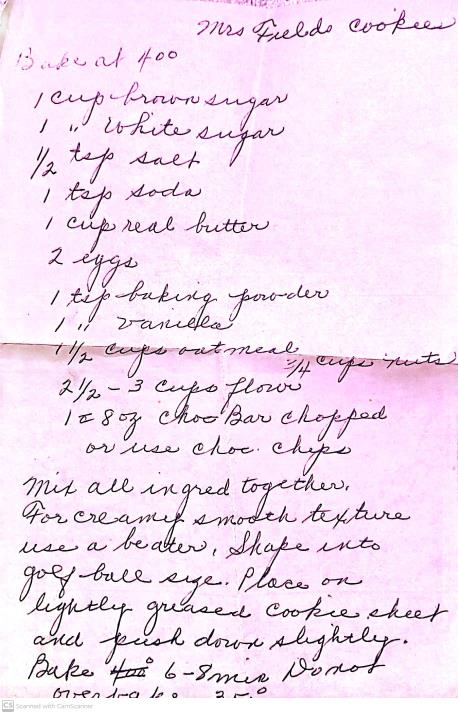 Mrs Fields cookies
Bake at 400
1 cup brown sugar
1 " White sugar
1/2 tsp salt
1 tsp soda
1 cup real butter
2 eggs
1 tsp baking powder
1 " vanilla
1 1/2 cups oatmeal
3/4 cups nuts
2 1/2 - 3 cups flour
1 8 oz choc Bar chopped
or use choc. chips
Mix all ingred together.
For creamy smooth texture
use a beater. Shape into
golf ball size. Place on
lightly greased cookie sheet
and push down slightly.
Bake 400° 6-8 min Do not
overbake
CS Scanned with CamScanner